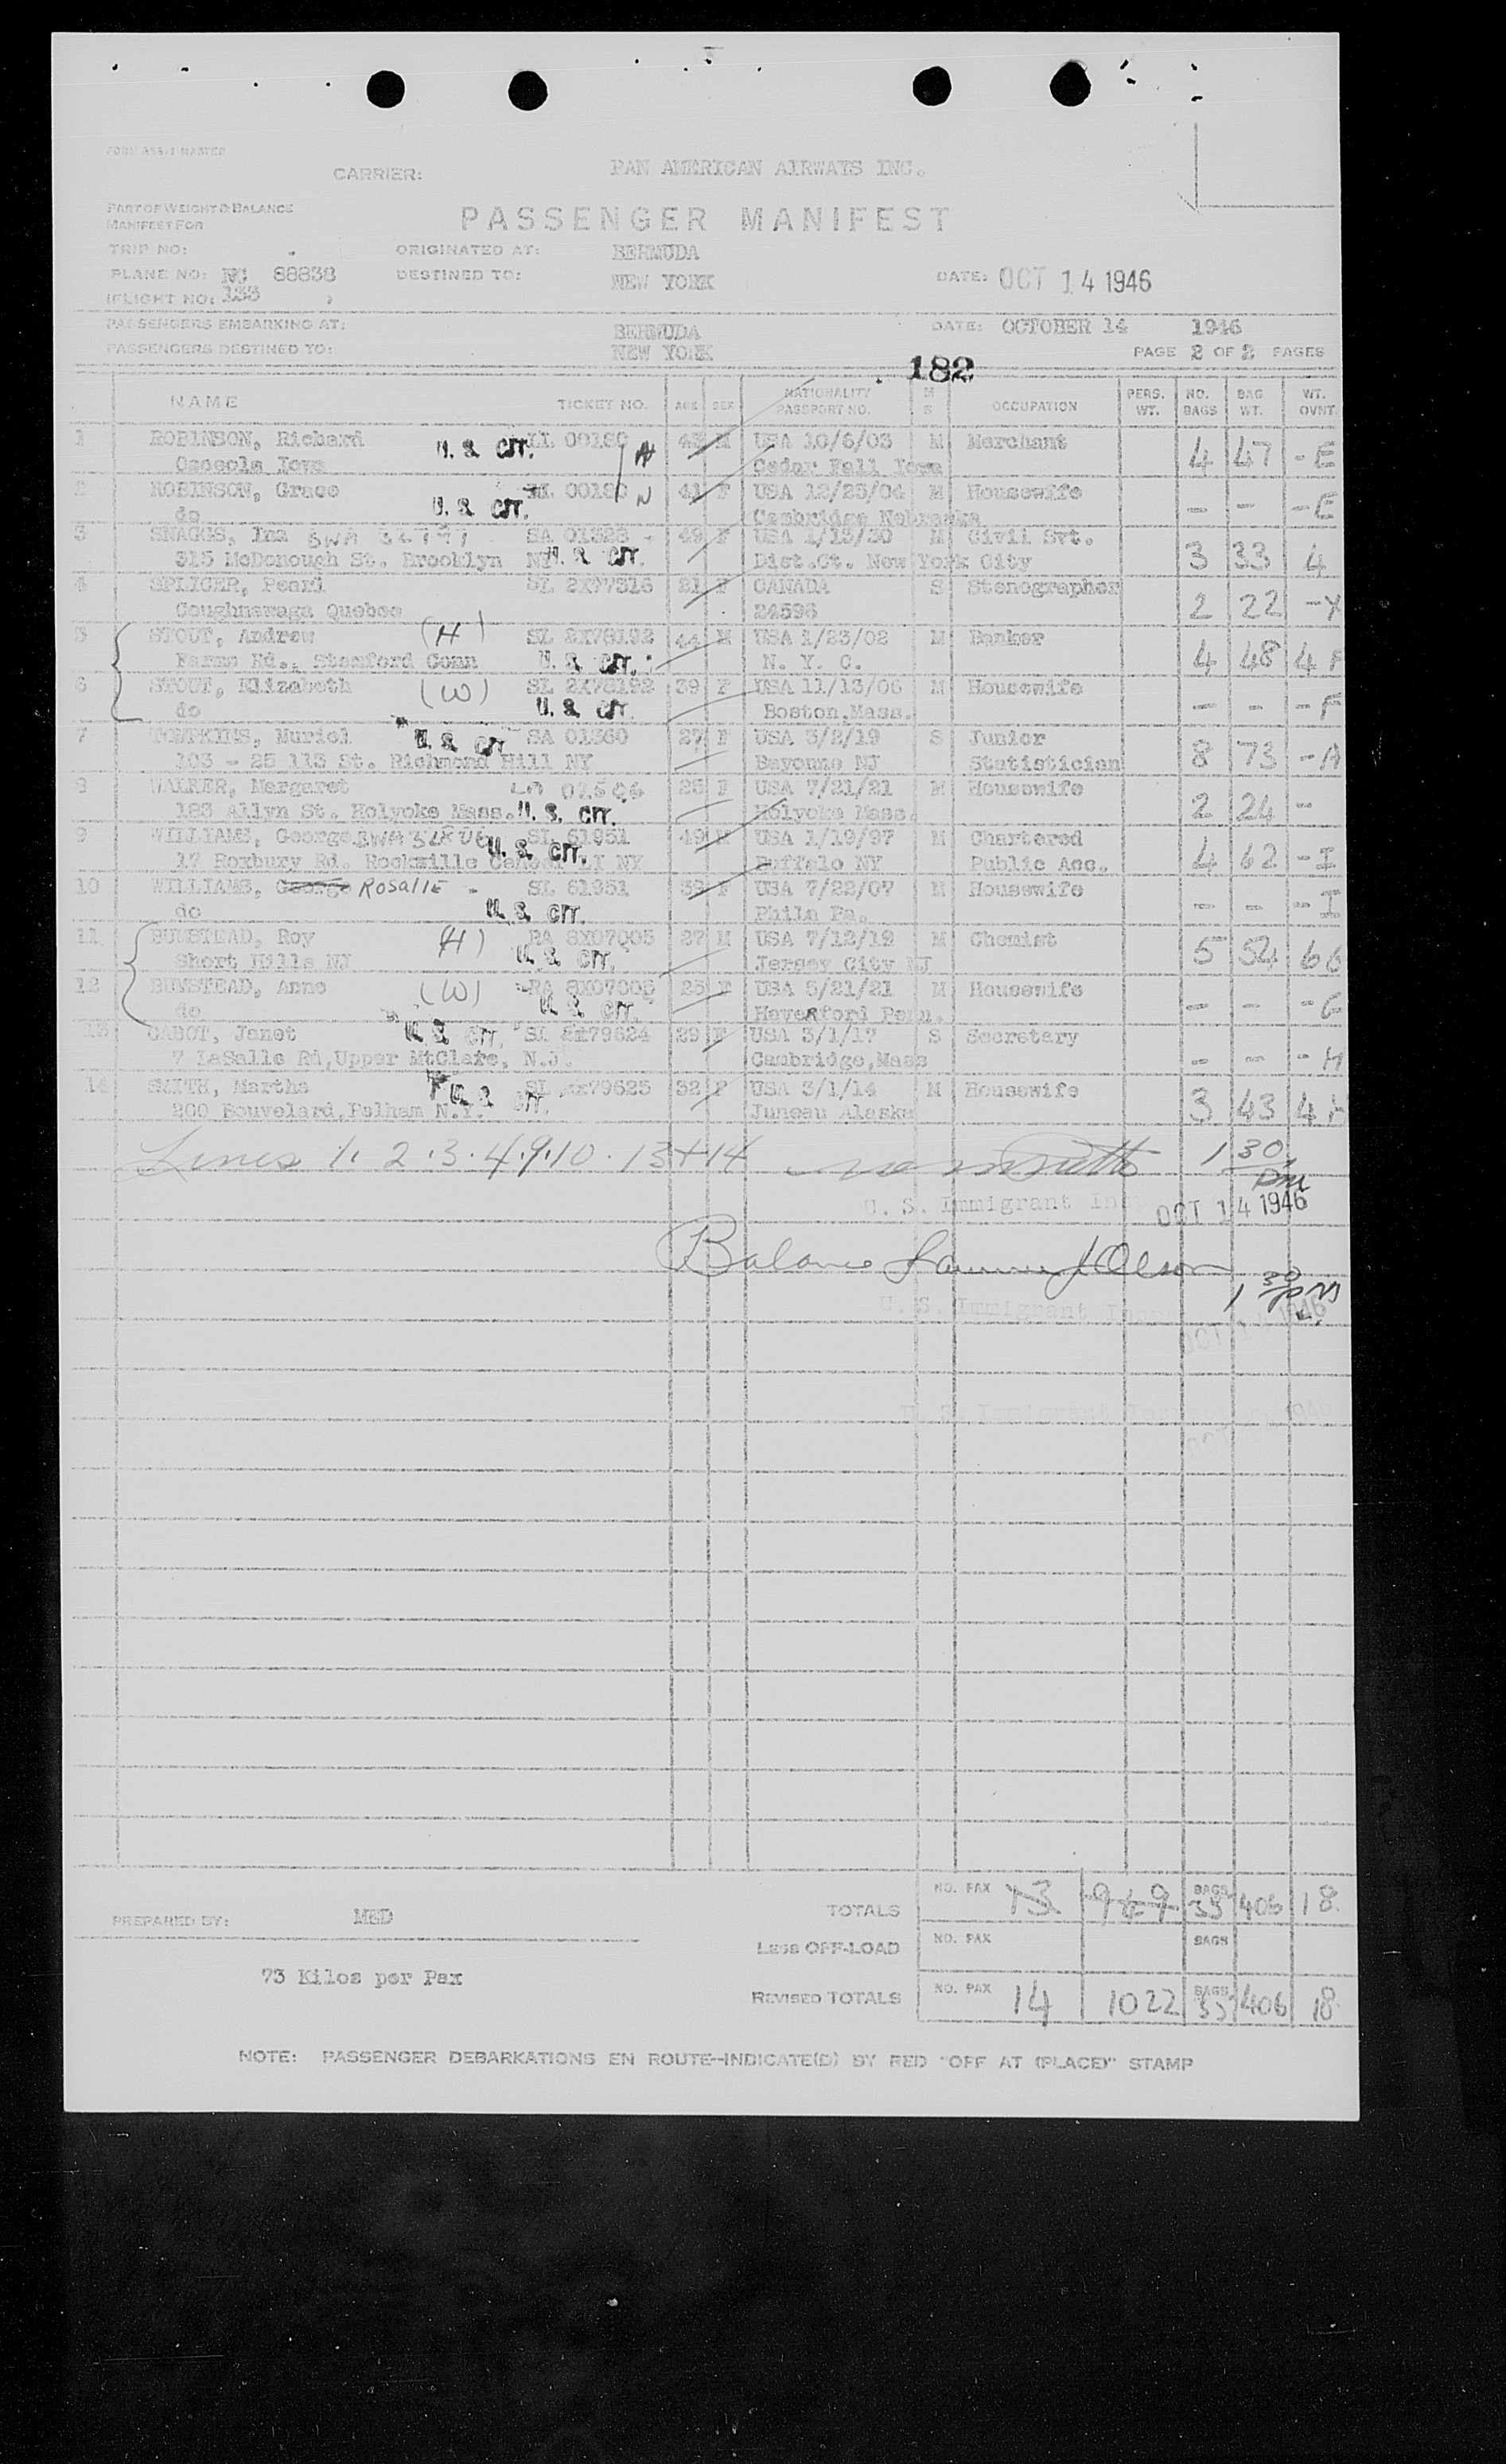 FORM
CARRIER: PAN AMERICAN AIRWAYS INC.
PART OF WEIGHT & BALANCE
MANIFEST FOR
PASSENGER MANIFEST
TRIP NO: ORIGINATED AT: BERMUDA
PLANE NO: NC 88838 DESTINED TO: NEW YORK DATE: OCT 14 1946
(FLIGHT NO: 133 )
PASSENGERS EMBARKING AT: BERMUDA DATE: OCTOBER 14 1946
PASSENGERS DESTINED TO: NEW YORK PAGE 2 OF 2 PAGES
182
NAME TICKET NO. AGE SEX NATIONALITY PASSPORT NO. M S OCCUPATION PERS. WT. NO. BAGS BAG WT. WT. OVNT.
1 ROBINSON, Richard U. S. CIT. M USA 10/6/03 M Merchant 4 47 - E
Osceola Iowa Cedar Fall Iowa
2 ROBINSON, Grace U. S. CIT. 41 F USA 12/25/04 M Housewife - - - E
do Cambridge Nebraska
3 SNAGGS, Ina SA 01328 - 49 F USA 1/15/30 M Civil Svt. 3 33 4
315 McDonough St. Brooklyn NY U. S. CIT. Dist.Ct. New York City
4 SPLICER, Pearl SL 2X77315 21 F CANADA S Stenographer 2 22 - Y
Caughnawaga Quebec 24596
5 STOUT, Andrew (H) SL 2X78192 44 M USA 1/23/02 M Banker 4 48 4 F
Farms Rd., Stamford Conn U. S. CIT. N. Y. C.
6 STOUT, Elizabeth (W) SL 2X78192 39 F USA 11/13/06 M Housewife - - - F
do U. S. CIT. Boston,Mass.
7 TOMPKINS, Muriel U. S. CIT SA 01360 27 F USA 3/2/19 S Junior 8 73 - A
103 - 25 113 St. Richmond Hill NY Bayonne NJ Statistician
8 WALKER, Margaret 25 F USA 7/21/21 M Housewife 2 24 -
183 Allyn St. Holyoke Mass. U. S. CIT. Holyoke Mass.
9 WILLIAMS, George SL 61951 49 M USA 1/19/97 M Chartered 4 62 - I
17 Roxbury Rd. Rockville U. S. CIT. LI NY Buffalo NY Public Acc.
10 WILLIAMS, George ROSALIE - SL 61951 39 F USA 7/22/07 M Housewife - - - I
do U. S. CIT. Phila Pa.
11 BUMSTEAD, Roy (H) RA 8X07005 27 M USA 7/12/19 M Chemist 5 54 6 G
Short Hills NJ U. S. CIT. Jersey City NJ
12 BUMSTEAD, Anne (W) RA 8X07005 25 F USA 5/21/21 M Housewife - - - G
do U. S. CIT. Haverford Penn.
13 CABOT, Janet U. S. CIT. SL 2X79624 29 F USA 3/1/17 S Secretary - - - H
7 LaSalle Rd,Upper MtClare, N.J. Cambridge,Mass
14 SMITH, Martha U. S. CIT. SL 2X79625 32 F USA 3/1/14 M Housewife 3 43 4 H
200 Bouvelard,Pelham N.Y. Juneau Alaska
Lines 1. 2. 3. 4. 9. 10. 13 + 14 1 30 PM
U. S. Immigrant OCT 14 1946
Balance Olson 1 30 PM
U. S. Immigrant
PREPARED BY: MED TOTALS NO. PAX 13 949 BAGS 35 406 18
Less OFF-LOAD NO. PAX BAGS
73 Kilos per Pax
REVISED TOTALS NO. PAX 14 1022 BAGS 35 406 18
NOTE: PASSENGER DEBARKATIONS EN ROUTE—INDICATE(D) BY RED "OFF AT (PLACE)" STAMP